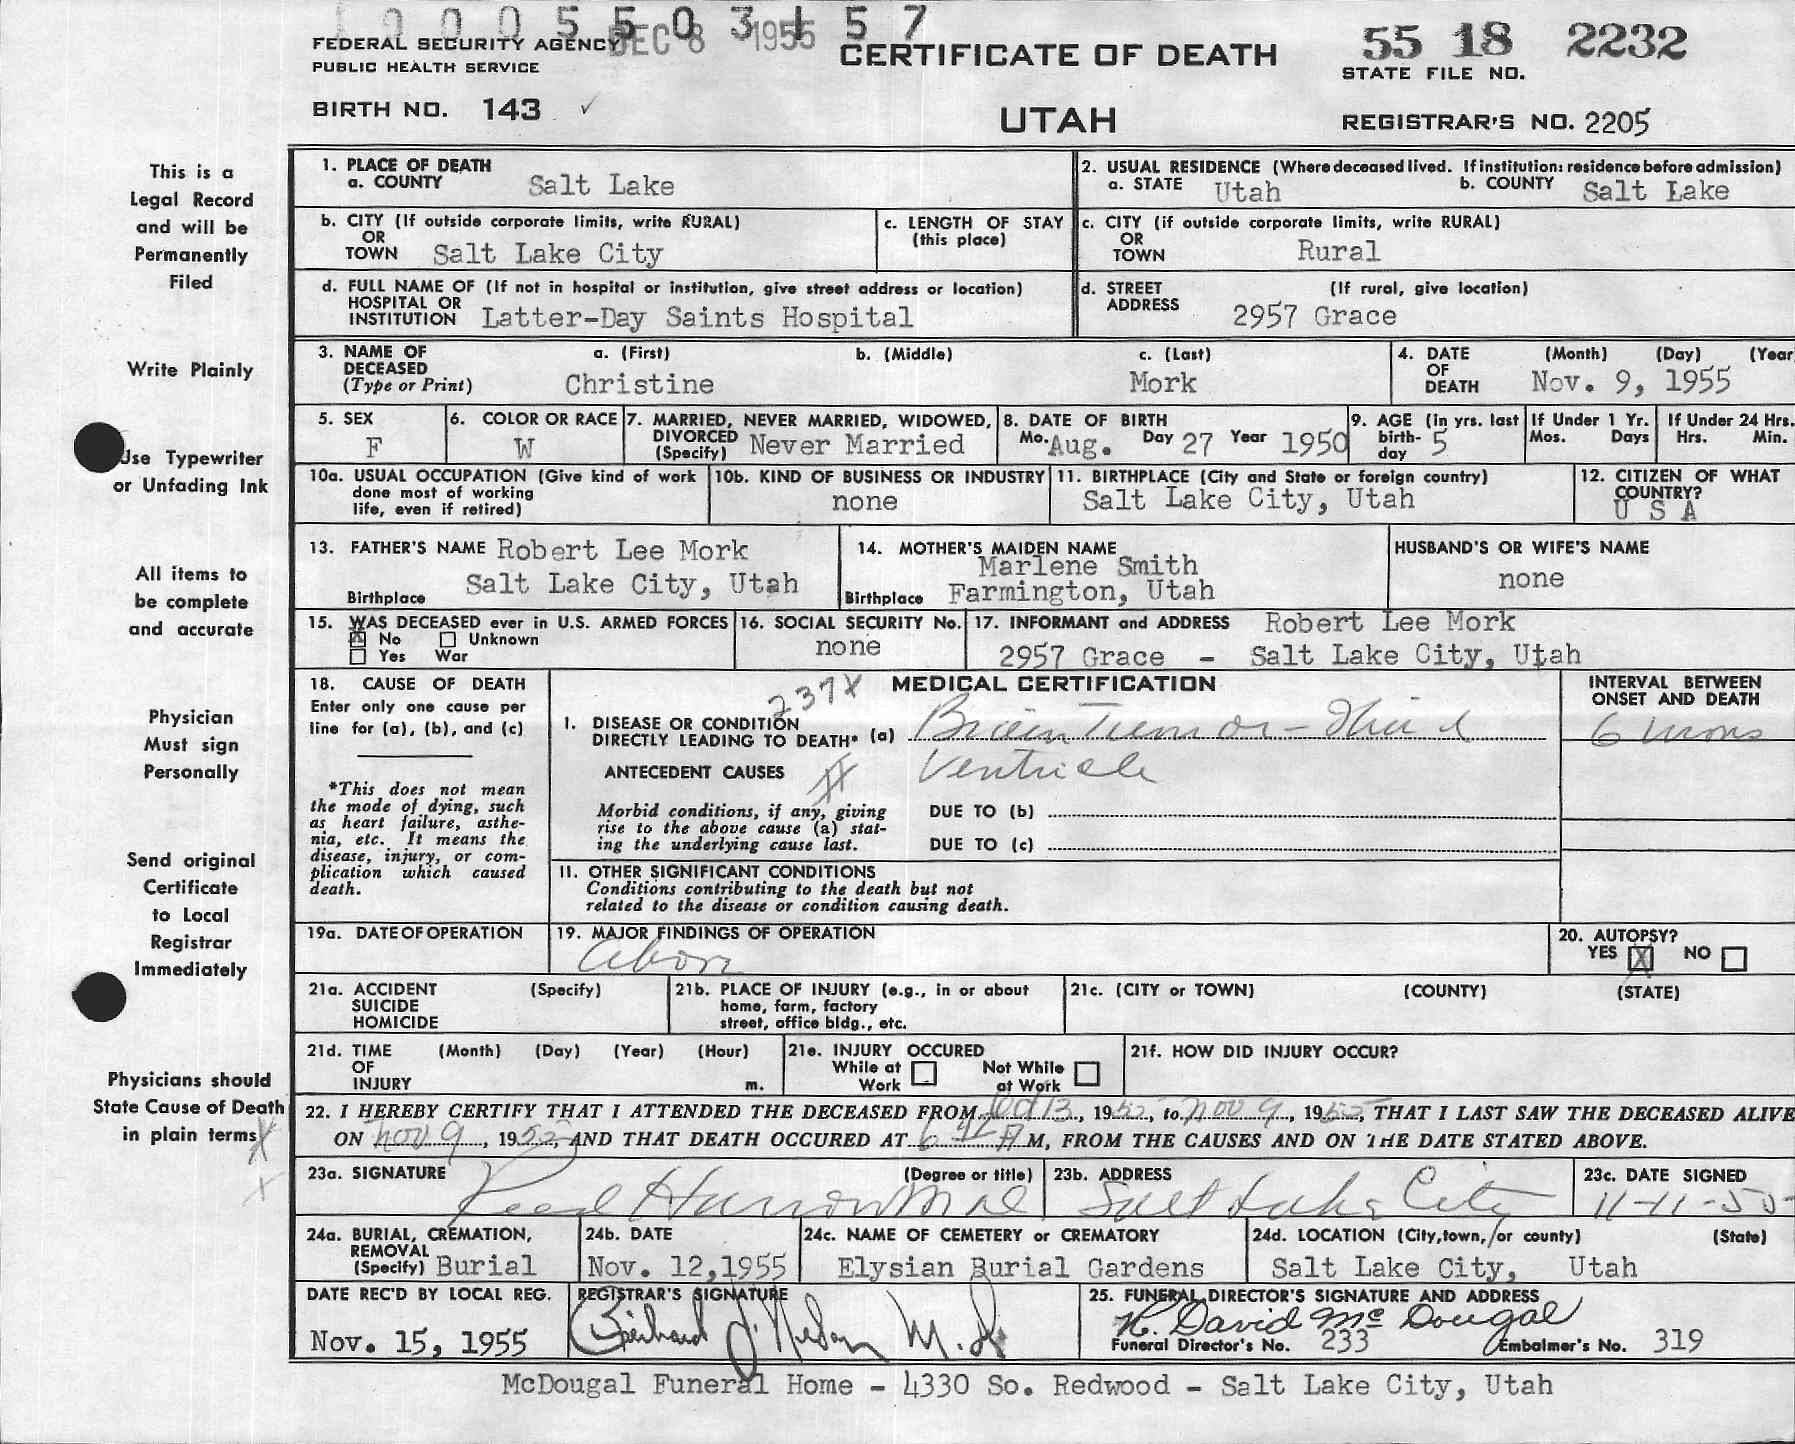 1 0 0 0 5 5 0 3 1 5 7
DEC 8 1955
FEDERAL SECURITY AGENCY
PUBLIC HEALTH SERVICE
CERTIFICATE OF DEATH
55 18 2232
STATE FILE NO.
BIRTH NO. 143 ✓
UTAH
REGISTRAR'S NO. 2205
This is a
Legal Record
and will be
Permanently
Filed
Write Plainly
Use Typewriter
or Unfading Ink
All items to
be complete
and accurate
Physician
Must sign
Personally
Send original
Certificate
to Local
Registrar
Immediately
Physicians should
State Cause of Death
in plain terms
1. PLACE OF DEATH
a. COUNTY Salt Lake
2. USUAL RESIDENCE (Where deceased lived. If institution: residence before admission)
a. STATE Utah b. COUNTY Salt Lake
b. CITY (If outside corporate limits, write RURAL)
OR
TOWN Salt Lake City
c. LENGTH OF STAY
(this place)
c. CITY (if outside corporate limits, write RURAL)
OR
TOWN Rural
d. FULL NAME OF (If not in hospital or institution, give street address or location)
HOSPITAL OR
INSTITUTION Latter-Day Saints Hospital
d. STREET (If rural, give location)
ADDRESS 2957 Grace
3. NAME OF
DECEASED
(Type or Print)
a. (First) b. (Middle) c. (Last)
Christine Mork
4. DATE (Month) (Day) (Year
OF
DEATH Nov. 9, 1955
5. SEX
F
6. COLOR OR RACE
W
7. MARRIED, NEVER MARRIED, WIDOWED,
DIVORCED
(Specify) Never Married
8. DATE OF BIRTH
Mo. Aug. Day 27 Year 1950
9. AGE (in yrs. last
birth-
day 5
If Under 1 Yr.
Mos. Days
If Under 24 Hrs.
Hrs. Min.
10a. USUAL OCCUPATION (Give kind of work
done most of working
life, even if retired)
10b. KIND OF BUSINESS OR INDUSTRY
none
11. BIRTHPLACE (City and State or foreign country)
Salt Lake City, Utah
12. CITIZEN OF WHAT
COUNTRY?
U S A
13. FATHER'S NAME Robert Lee Mork
Birthplace Salt Lake City, Utah
14. MOTHER'S MAIDEN NAME
Marlene Smith
Birthplace Farmington, Utah
HUSBAND'S OR WIFE'S NAME
none
15. WAS DECEASED ever in U.S. ARMED FORCES
X No Unknown
Yes War
16. SOCIAL SECURITY No.
none
17. INFORMANT and ADDRESS Robert Lee Mork
2957 Grace - Salt Lake City, Utah
18. CAUSE OF DEATH
Enter only one cause per
line for (a), (b), and (c)
*This does not mean
the mode of dying, such
as heart failure, asthe-
nia, etc. It means the
disease, injury, or com-
plication which caused
death.
237X
MEDICAL CERTIFICATION
INTERVAL BETWEEN
ONSET AND DEATH
I. DISEASE OR CONDITION
DIRECTLY LEADING TO DEATH* (a) Brain Tumor - Third
Ventricle
6 mons
ANTECEDENT CAUSES
Morbid conditions, if any, giving
rise to the above cause (a) stat-
ing the underlying cause last.
DUE TO (b)
DUE TO (c)
11. OTHER SIGNIFICANT CONDITIONS
Conditions contributing to the death but not
related to the disease or condition causing death.
19a. DATE OF OPERATION
19. MAJOR FINDINGS OF OPERATION
20. AUTOPSY?
YES X NO
21a. ACCIDENT (Specify)
SUICIDE
HOMICIDE
21b. PLACE OF INJURY (e.g., in or about
home, farm, factory
street, office bldg., etc.
21c. (CITY or TOWN) (COUNTY) (STATE)
21d. TIME (Month) (Day) (Year) (Hour)
OF
INJURY m.
21e. INJURY OCCURED
While at Not While
Work at Work
21f. HOW DID INJURY OCCUR?
22. I HEREBY CERTIFY THAT I ATTENDED THE DECEASED FROM Oct 13, 1955, to Nov 9, 1955, THAT I LAST SAW THE DECEASED ALIVE
ON Nov 9, 1955, AND THAT DEATH OCCURED AT M, FROM THE CAUSES AND ON THE DATE STATED ABOVE.
23a. SIGNATURE (Degree or title)
Reed Harrow M D
23b. ADDRESS
Salt Lake City
23c. DATE SIGNED
11-11-55
24a. BURIAL, CREMATION,
REMOVAL
(Specify) Burial
24b. DATE
Nov. 12, 1955
24c. NAME OF CEMETERY or CREMATORY
Elysian Burial Gardens
24d. LOCATION (City, town, or county) (State)
Salt Lake City, Utah
DATE REC'D BY LOCAL REG.
Nov. 15, 1955
REGISTRAR'S SIGNATURE
M.D.
25. FUNERAL DIRECTOR'S SIGNATURE AND ADDRESS
H. David McDougal
Funeral Director's No. 233 Embalmer's No. 319
McDougal Funeral Home - 4330 So. Redwood - Salt Lake City, Utah